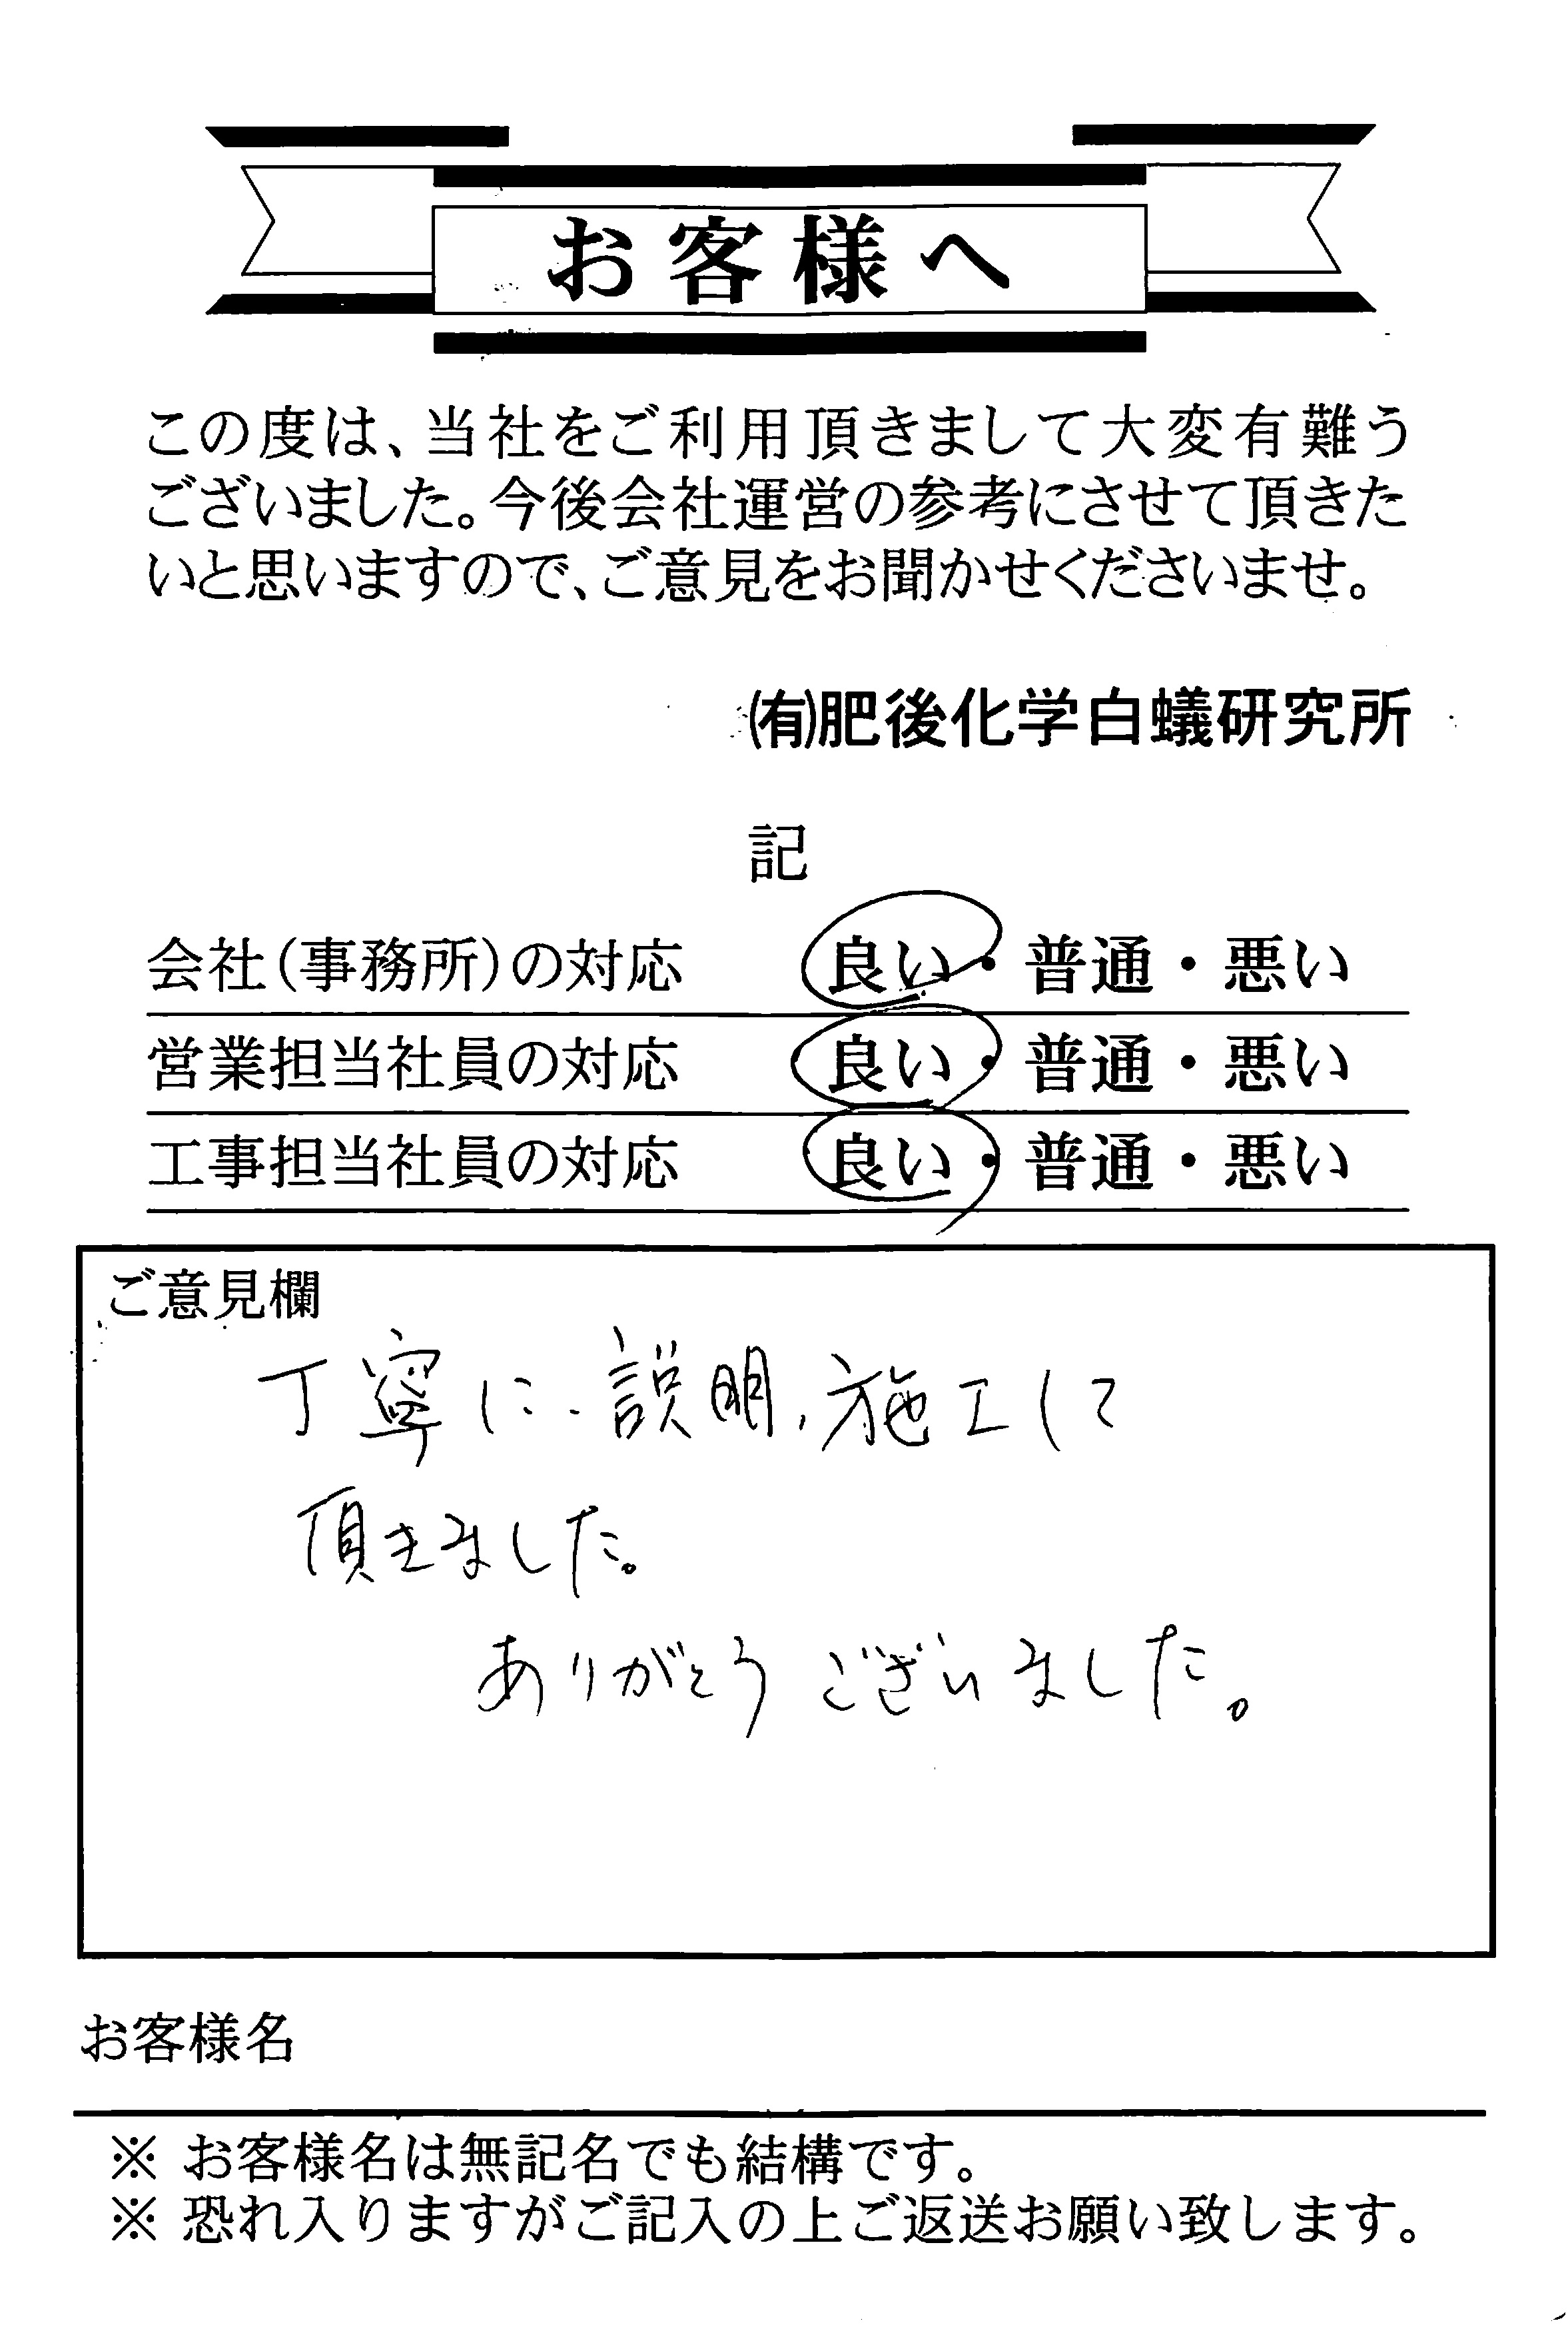 お客様へ
この度は、当社をご利用頂きまして大変有難う
ございました。今後会社運営の参考にさせて頂きた
いと思いますので、ご意見をお聞かせくださいませ。
㈲肥後化学白蟻研究所
記
会社(事務所)の対応 良い・普通・悪い
営業担当社員の対応 良い・普通・悪い
工事担当社員の対応 良い・普通・悪い
ご意見欄
丁寧に、説明、施工して
頂きました。
ありがとうございました。
お客様名
※ お客様名は無記名でも結構です。
※ 恐れ入りますがご記入の上ご返送お願い致します。